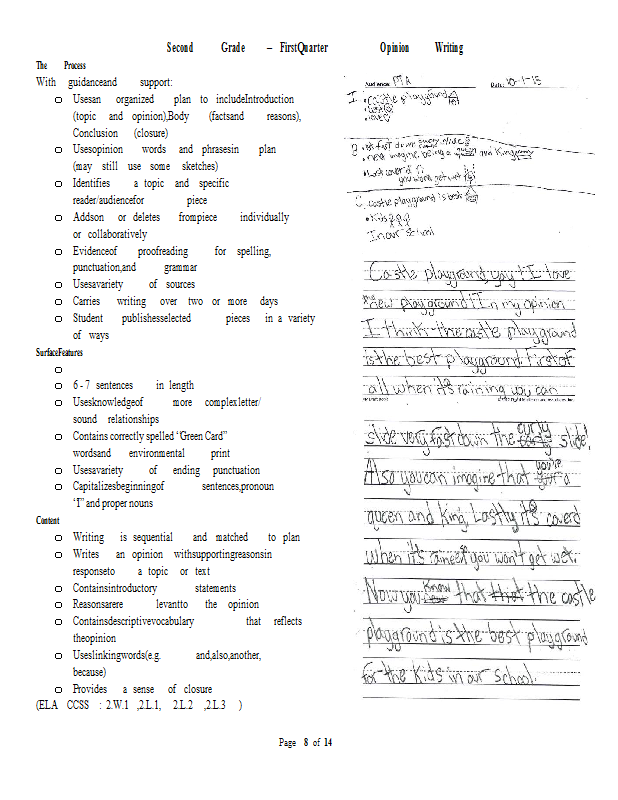 Second Grade – FirstQuarter Opinion Writing
The Process
With guidanceand support:
o Usesan organized plan to includeIntroduction
(topic and opinion),Body (factsand reasons),
Conclusion (closure)
o Usesopinion words and phrasesin plan
(may still use some sketches)
o Identifies a topic and specific
reader/audiencefor piece
o Addson or deletes frompiece individually
or collaboratively
o Evidenceof proofreading for spelling,
punctuation,and grammar
o Usesavariety of sources
o Carries writing over two or more days
o Student publishesselected pieces in a variety
of ways
SurfaceFeatures
o
o 6 - 7 sentences in length
o Usesknowledgeof more complexletter/
sound relationships
o Contains correctly spelled "Green Card"
wordsand environmental print
o Usesavariety of ending punctuation
o Capitalizesbeginningof sentences,pronoun
"I" and proper nouns
Content
o Writing is sequential and matched to plan
o Writes an opinion withsupportingreasonsin
responseto a topic or text
o Containsintroductory statements
o Reasonsare levantto the opinion
o Containsdescriptivevocabulary that reflects
theopinion
o Useslinkingwords(e.g. and,also,another,
because)
o Provides a sense of closure
(ELA CCSS : 2.W.1 ,2.L.1, 2.L.2 ,2.L.3 )
Audience: PTA Date: 10-1-15
I. • castle playground
• love
B. • fast down slide
• next imagine being a queen and King
you wont get wet
C. castle playground is best
• Kids
In our School
Castle playground, yay! I love
the new playground! In my opinion
I think the castle playground
is the best playground. First of
all when it's raining you can
slide very fast down the curly slide!
Also you can imagine that you're a
queen and King. Lastly it's coverd
when it's you won't get wet.
Now you Know that the castle
playground is the best playground
for the Kids in our school.
Page 8 of 14